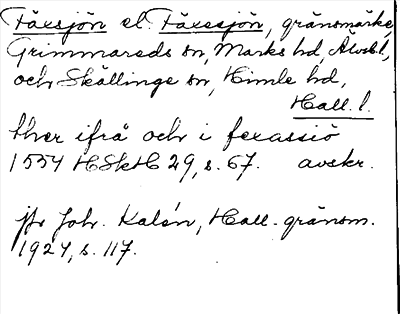 Fäxsjön el. Fäxesjön, gränsmärke,
Grimmareds sn, Marks hd, Älvsb. l,
och Skällinge sn, Himle hd,
Hall. l.
thær ifrå och i fexassiö
1554 HSkH 29, s. 67. avskr.
jfr Joh. Kalén, Hall. gränsm.
1924, s. 117.